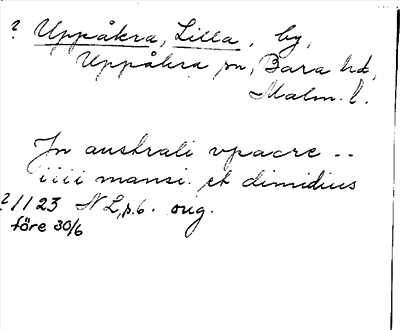 ? Uppåkra, Lilla, by,
Uppåkra sn, Bara hd,
Malm. l.
In australi vpacre --
iiii mansi et dimidius
? 1123 NL, p. 6. orig.
före 30/6